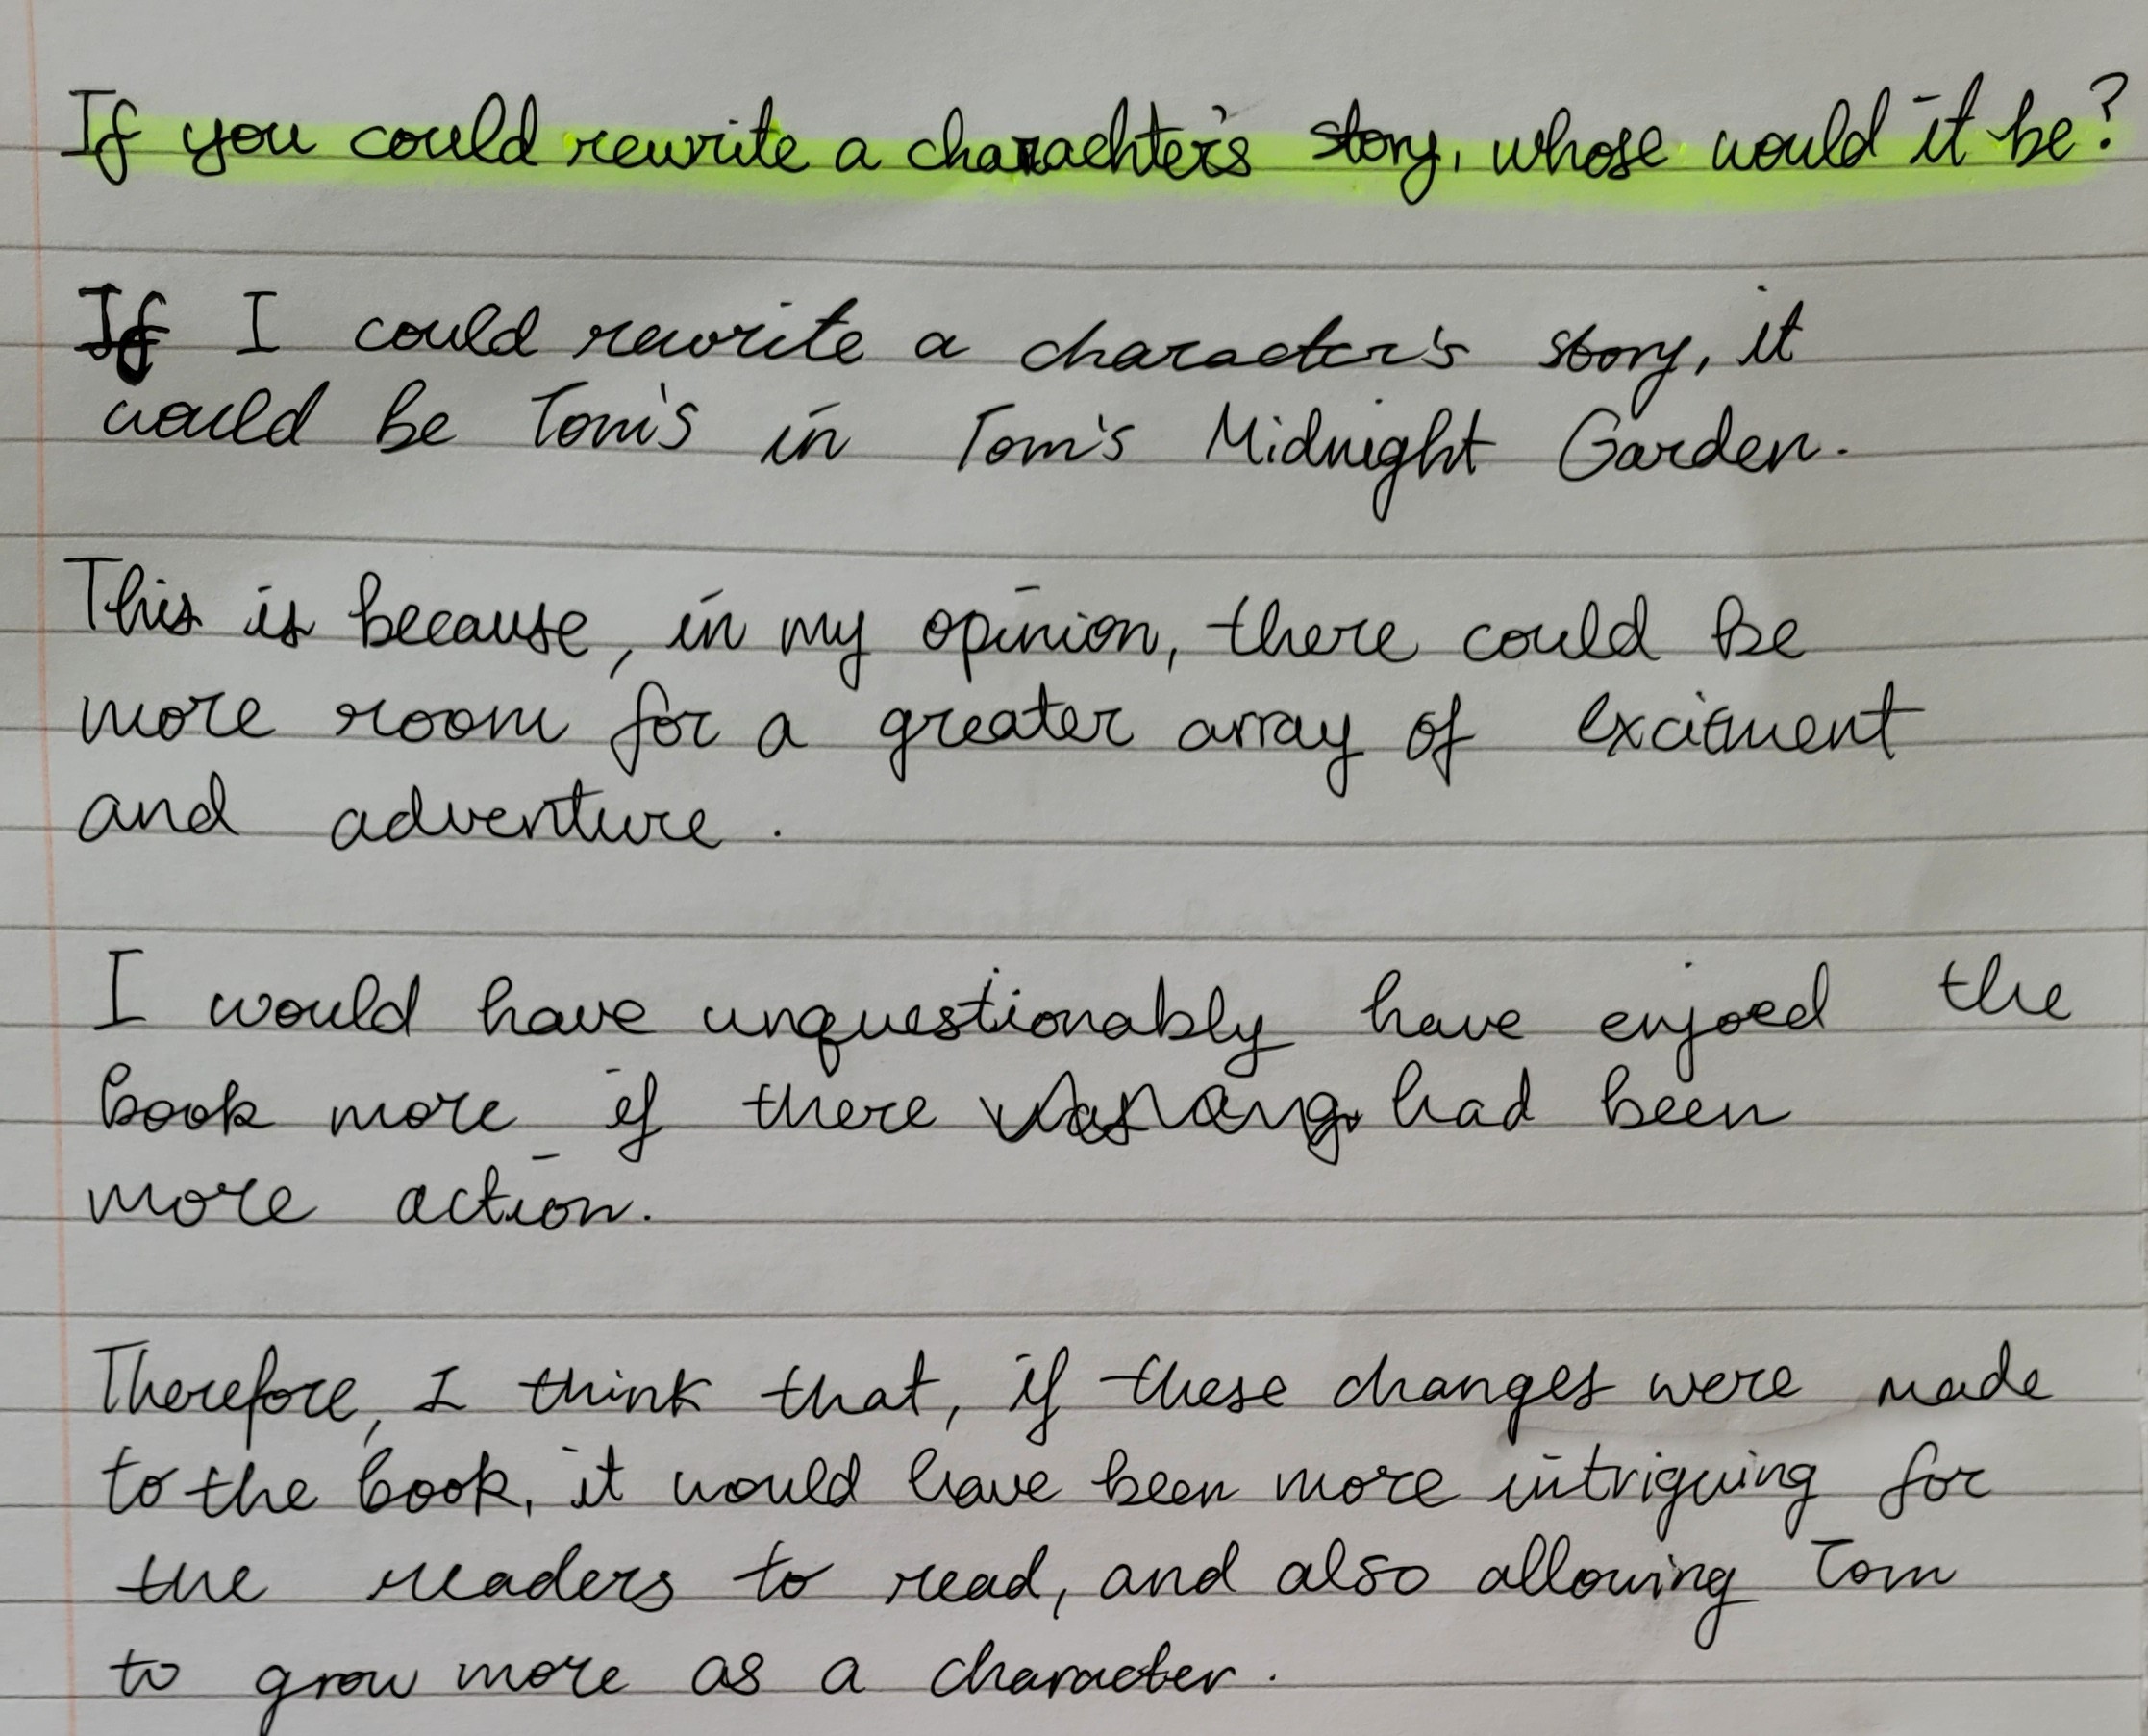 If you could rewrite a charachter's story, whose would it be?
If I could rewrite a character's story, it
would be Tom's in Tom's Midnight Garden.
This is because, in my opinion, there could be
more room for a greater array of excitment
and adventure.
I would have unquestionably have enjoed the
book more if there had been
more action.
Therefore, I think that, if these changes were made
to the book, it would have been more intriguing for
the readers to read, and also allowing Tom
to grow more as a character.